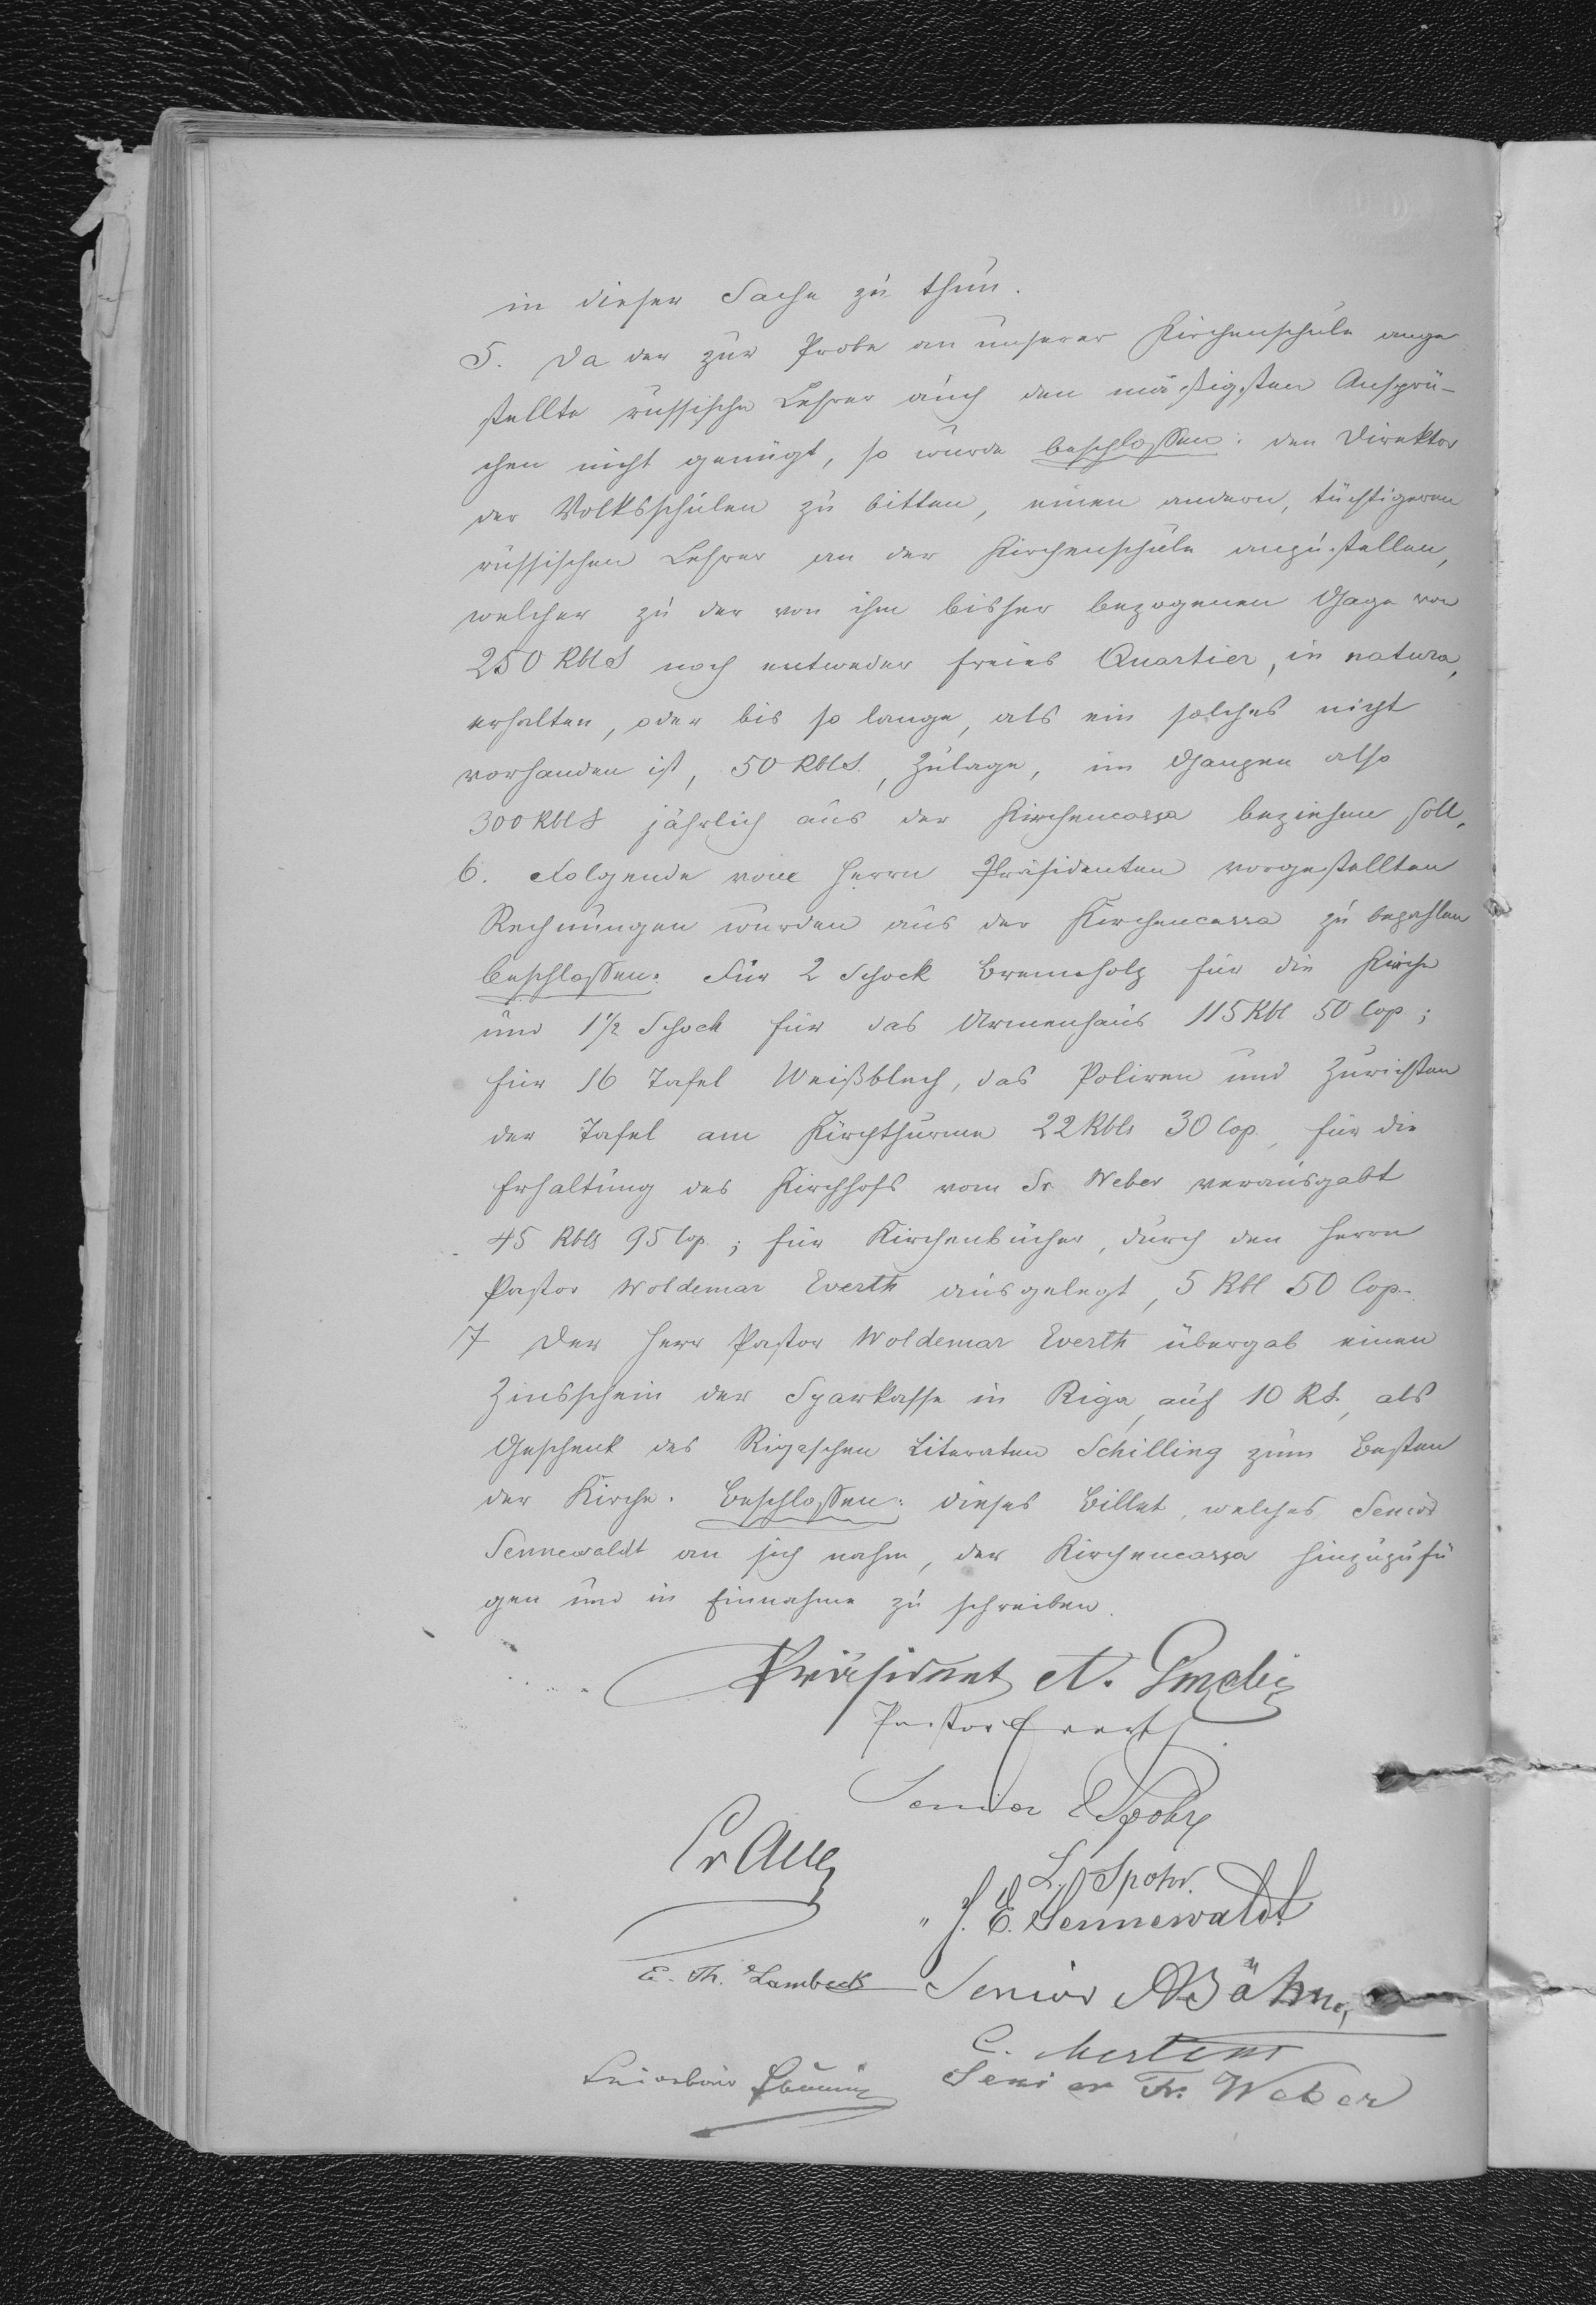 in dieser Sache zu thun.
5. Da der zur Probe an unserer Kirchenschule ange
stellte russische Lehrer auch den mäßigsten Ansprü-
chen nicht genügt, so wurde beschlossen: den Direktor
der Volksschulen zu bitten, einen andern, tüchtigeren
russischen Lehrer an der Kirchenschule anzustellen,
welcher zu der von ihm bisher bezogenen Gage von
250 Rbl S noch entweder freies Quartier, in natura,
erhalten, oder bis so lange, als ein solches nicht
vorhanden ist, 50 Rbl S., Zulage, im Ganzen also
300 Rbl S jährlich aus der Kirchencassa beziehen soll.
6. Folgende vom Herrn Präsidenten vorgestellten
Rechnungen wurden aus der Kirchencassa zu bezahlen
beschlossen: Für 2 Schock Brennholz für die Kirche
und 1 1/2 Schock für das Armenhaus 115 Rbl 50 Cop.;
für 16 Tafel Weißblech, das Poliren und Zurichten
der Tafel am Kirchthurme 22 Rbls 30 Cop., für die
Erhaltung des Kirchhofs vom Sr. Weber verausgabt
45 Rbls 95 Cop.; für Kirchenbücher, durch den Herrn
Pastor Woldemar Everth ausgelegt, 5 Rbl 50 Cop.
7 Der Herr Pastor Woldemar Everth übergab einen
Zinsschein der Sparkasse in Riga, auf 10 R S., als
Geschenk des Rigaschen Literaten Schilling zum Besten
der Kirche. Beschlossen: dieses Billet, welches Senior
Sennewaldt an sich nahm, der Kirchencassa hinzuzufü
gen und in Einnahme zu schreiben.
Präsident A.
Pastor Everth
Senior E Spohr
L. Spohr.
" J. E. Sennewaldt
E. Th. Lambeck Senior A Böhme,
C. Mertens
Senior Fr. Weber